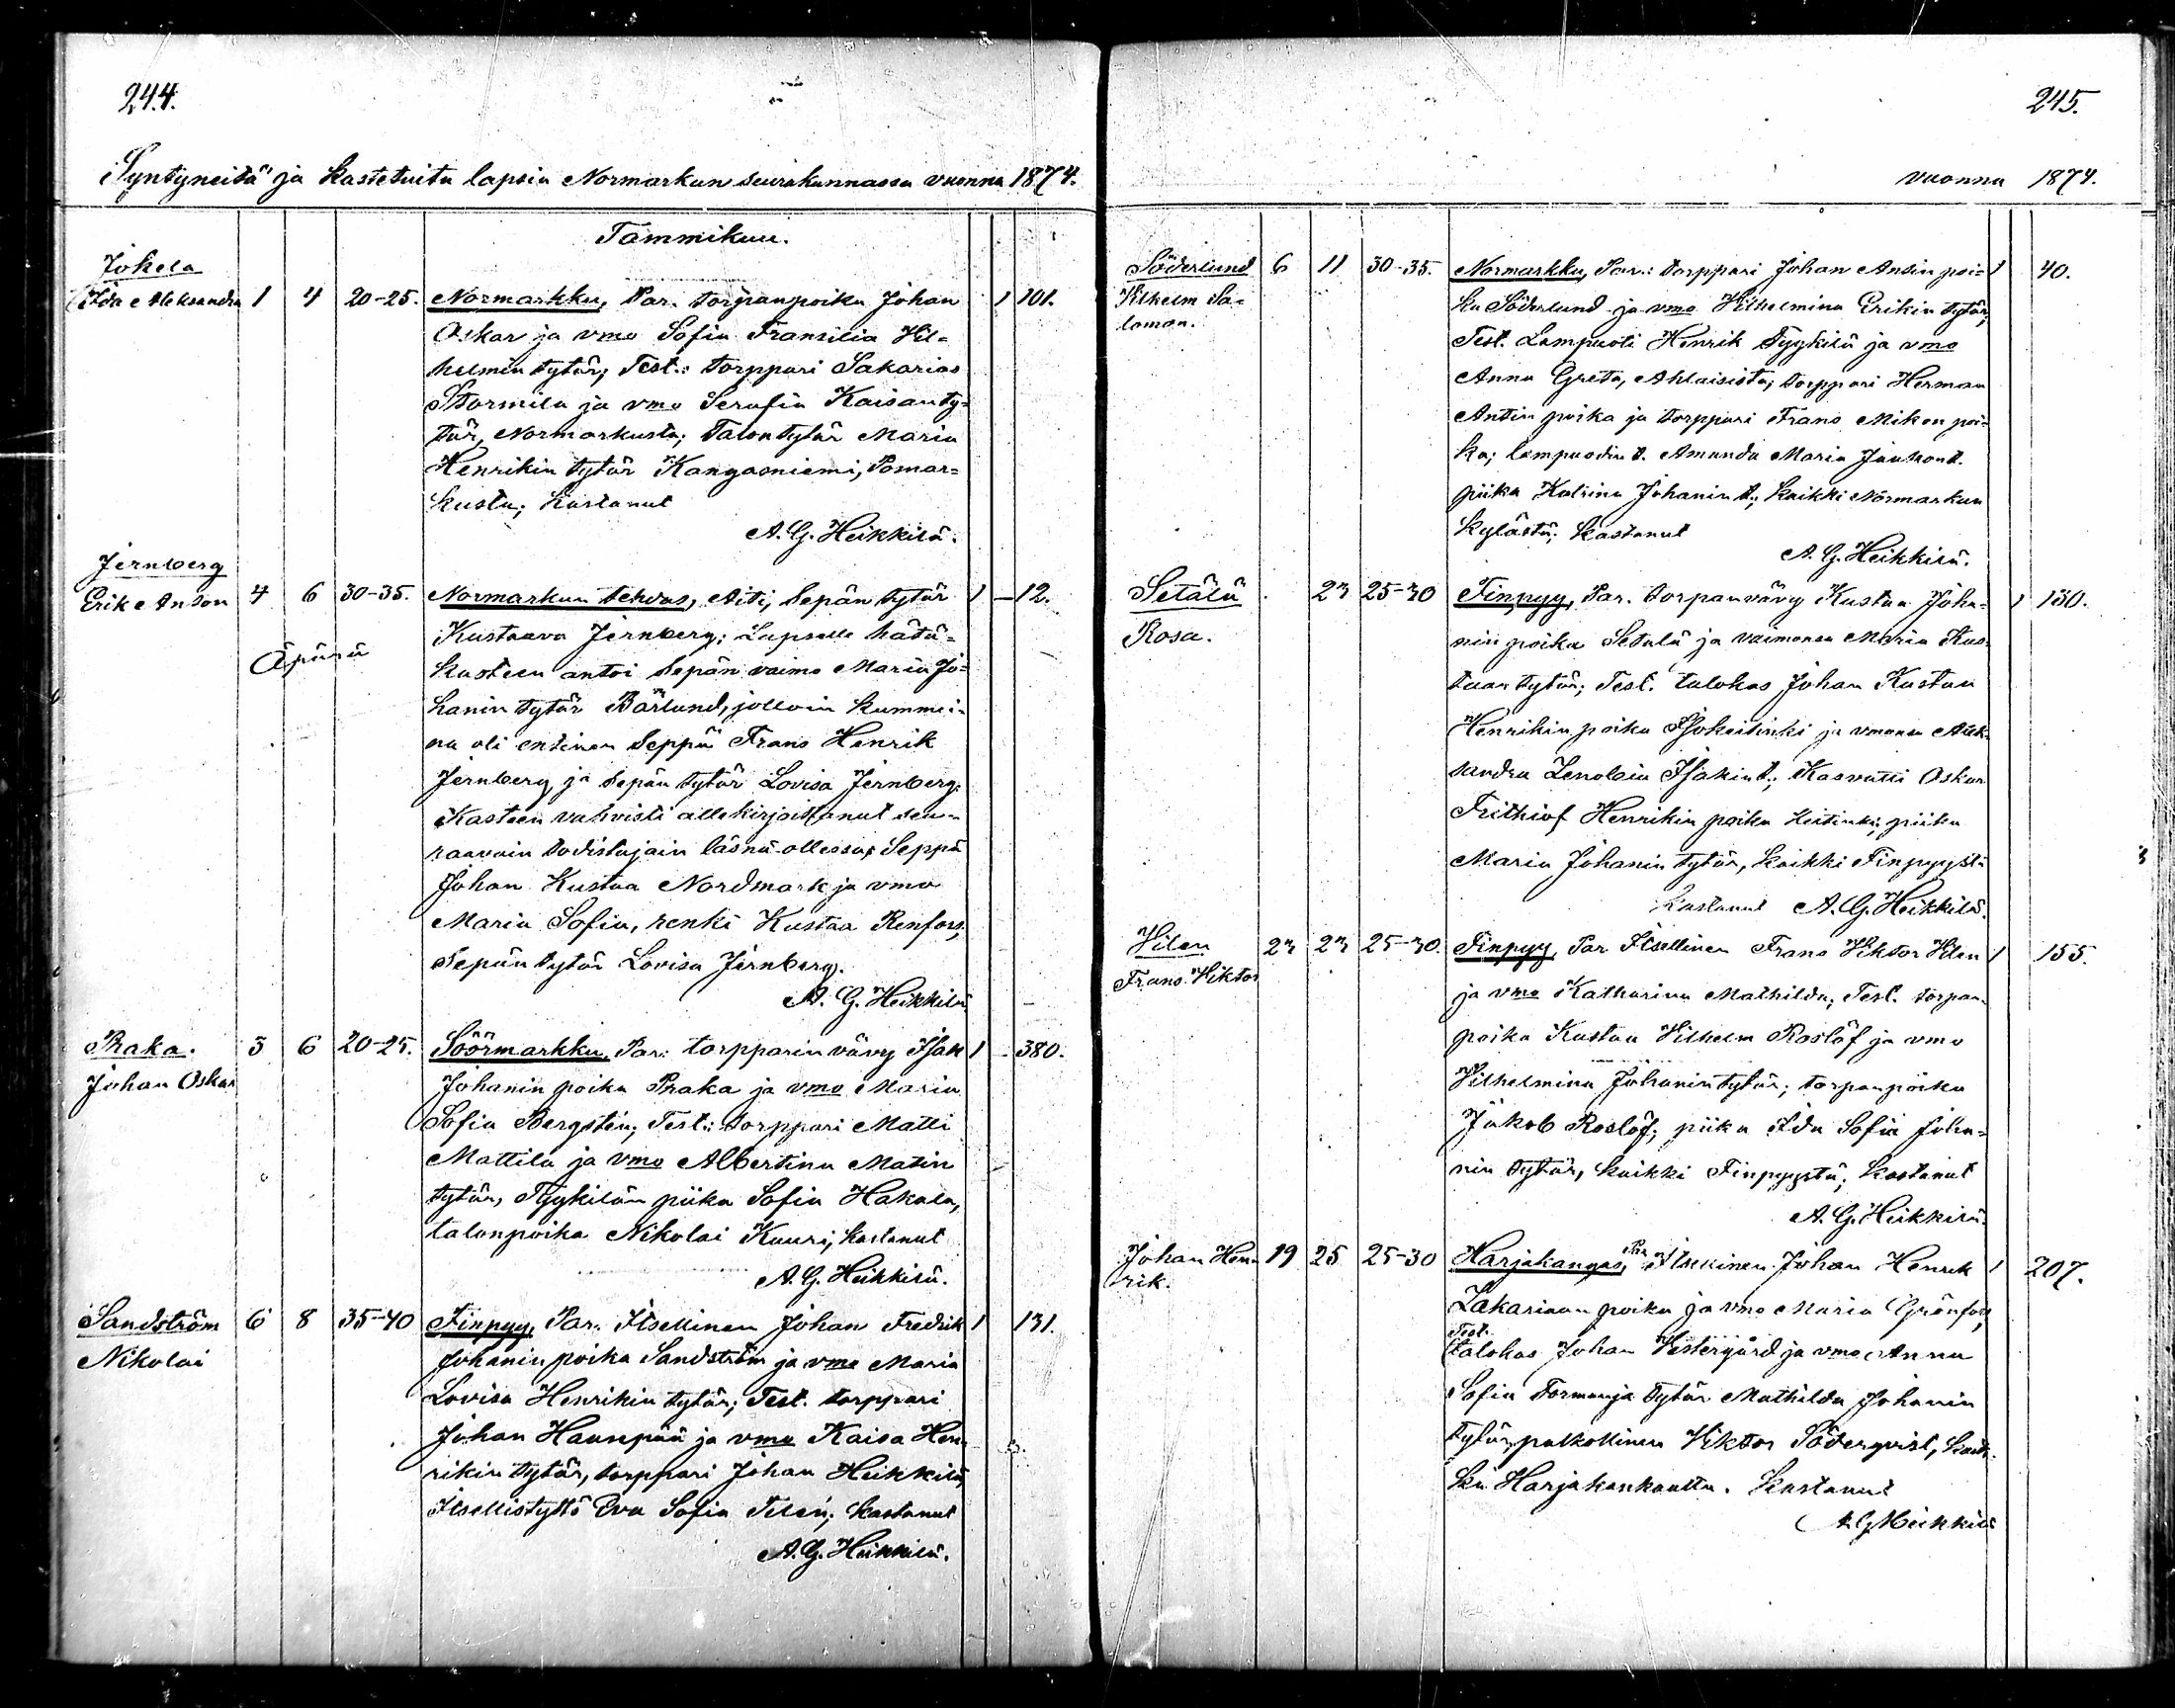 244.
Syntyneitä ja kastetuita lapsia Normarkun seurakunnassa vuonna 1874.
Tammikuu.
Jokela
Ida Aleksandra 1 4 20-25. Normarkku, Par. torpanpoika Johan 1 101.
Oskar ja vmo Sofia Fransilia Vil-
helmin tytär; Test.: torppari Sakarias
Stormila ja vmo Serafia Kaisan ty-
tär, Normarkusta; Talontytär Maria
Henrikin tytär Kangasniemi, Pomar-
kusta; kastanut
A. G. Heikkilä.
Jernberg
Erik Anton 4 6 30-35. Normarkun tehdas, Äiti, Sepän tytär 1 12.
Äpärä
Kustaava Jernberg; Lapselle hätä-
kasteen antoi sepän vaimo Maria Jo-
hanin tytär Bärlund, jolloin kummei-
na oli entinen Seppä Frans Henrik
Jernberg ja sepän tytär Lovisa Jernberg.
Kasteen vahvisti allekirjoittanut seu-
raavain todistajain läsnä-ollessa; Seppä
Johan Kustaa Nordmark ja vmo
Maria Sofia, renki Kustaa Renfors,
Sepän tytär Lovisa Jernberg.
A. G. Heikkilä.
Praka. 5 6 20-25. Söörmarkku, Par: torpparin vävy Isak 1 380.
Johan Oskar
Johanin poika Praka ja vmo Maria
Sofia Bergstén; Test.: torppari Matti
Mattila ja vmo Albertina Matin
tytär, Tyykilän piika Sofia Hakala,
talonpoika Nikolai Kuuri, kastanut
A. G. Heikkilä.
Sandström 6 8 35-40 Finpyy, Par. Itsellinen Johan Fredrik 1 131.
Nikolai
Johanin poika Sandström ja vmo Maria
Lovisa Henrikin tytär; Test. torppari
Johan Haunpää ja vmo Kaisa Hen-
rikin tytär, torppari Johan Heikkilä,
Itsellistyttö Eva Sofia Tilén; kastanut
A. G. Heikkilä.
245.
vuonna 1874.
Söderlund 6 11 30-35. Normarkku, Par.: torppari Johan Antin poi- 1 40.
Vilhelm Sa-
lomon.
ka Söderlund ja vmo Vilhelmina Erikin tytär;
Test. Lampuoti Henrik Tyykilä ja vmo
Anna Greta, Ahlaisista; torppari Herman
Antin poika ja torppari Frans Mikon poi-
ka; lampuodin t. Amanda Maria Jaakont.
piika Katrina Johanin t.; kaikki Normarkun
kylästä; kastanut
A. G. Heikkilä.
Setälä 23 25-30 Finpyy, Par. torpanvävy Kustaa Joha- 1 130.
Rosa.
nin poika Setälä ja vaimonsa Maria Kus-
taan tytär; Test. talokas Johan Kustaa
Henrikin poika ja vmonsa Alek-
sandra Isakin t.; Kasvatti Oskar
Frithiof Henrikin poika piika
Maria Johanin tytär, kaikki Finpyystä
kastanut A. G. Heikkilä.
Vilen 23 23 25-30. Finpyy, Par Itsellinen Frans Viktor Vilen 1 155.
Frans Viktor
ja vmo Katharina Mathilda; Test. torpan-
poika Kustaa Vilhelm Roslöf ja vmo
Vilhelmina Johanin tytär; torpanpoika
Jakob Roslöf; piika Ida Sofia Joha-
nin tytär, kaikki Finpyystä; kastanut
A. G. Heikkilä.
Johan Hen- 19 25 25-30 Harjakangas, Par. Itsellinen Johan Henrik 1 207.
rik.
Zakariaan poika ja vmo Maria Grönfors,
Test.
talokas Johan Vestergård ja vmo Anna
Sofia tytär Mathilda Johanin
tytär, palkollinen Viktor Söderqvist, kaik-
ki Harjakankaalta. Kastanut
A G Heikkilä